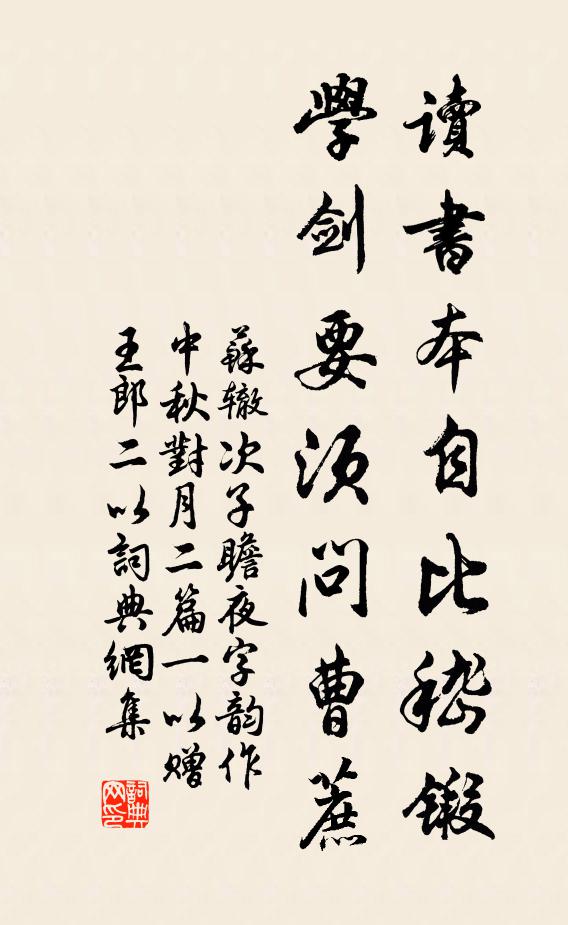 讀書本自比嵇鍛
學劍要須問曹蔗
蘇辙次子瞻夜字韵作
中秋對月二篇一以赠
王郎二以詞典網集
詞典
网印